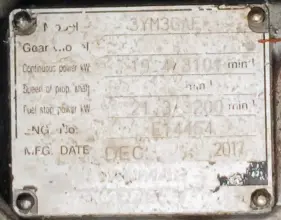 Model 3YM30AE
Gear Model
Continuous power kW 19.4/3101 min⁻¹
Speed of prop. shaft min⁻¹
Fuel stop power kW 21.3/3200 min⁻¹
ENG. No. E14464
MFG. DATE DEC. 2017